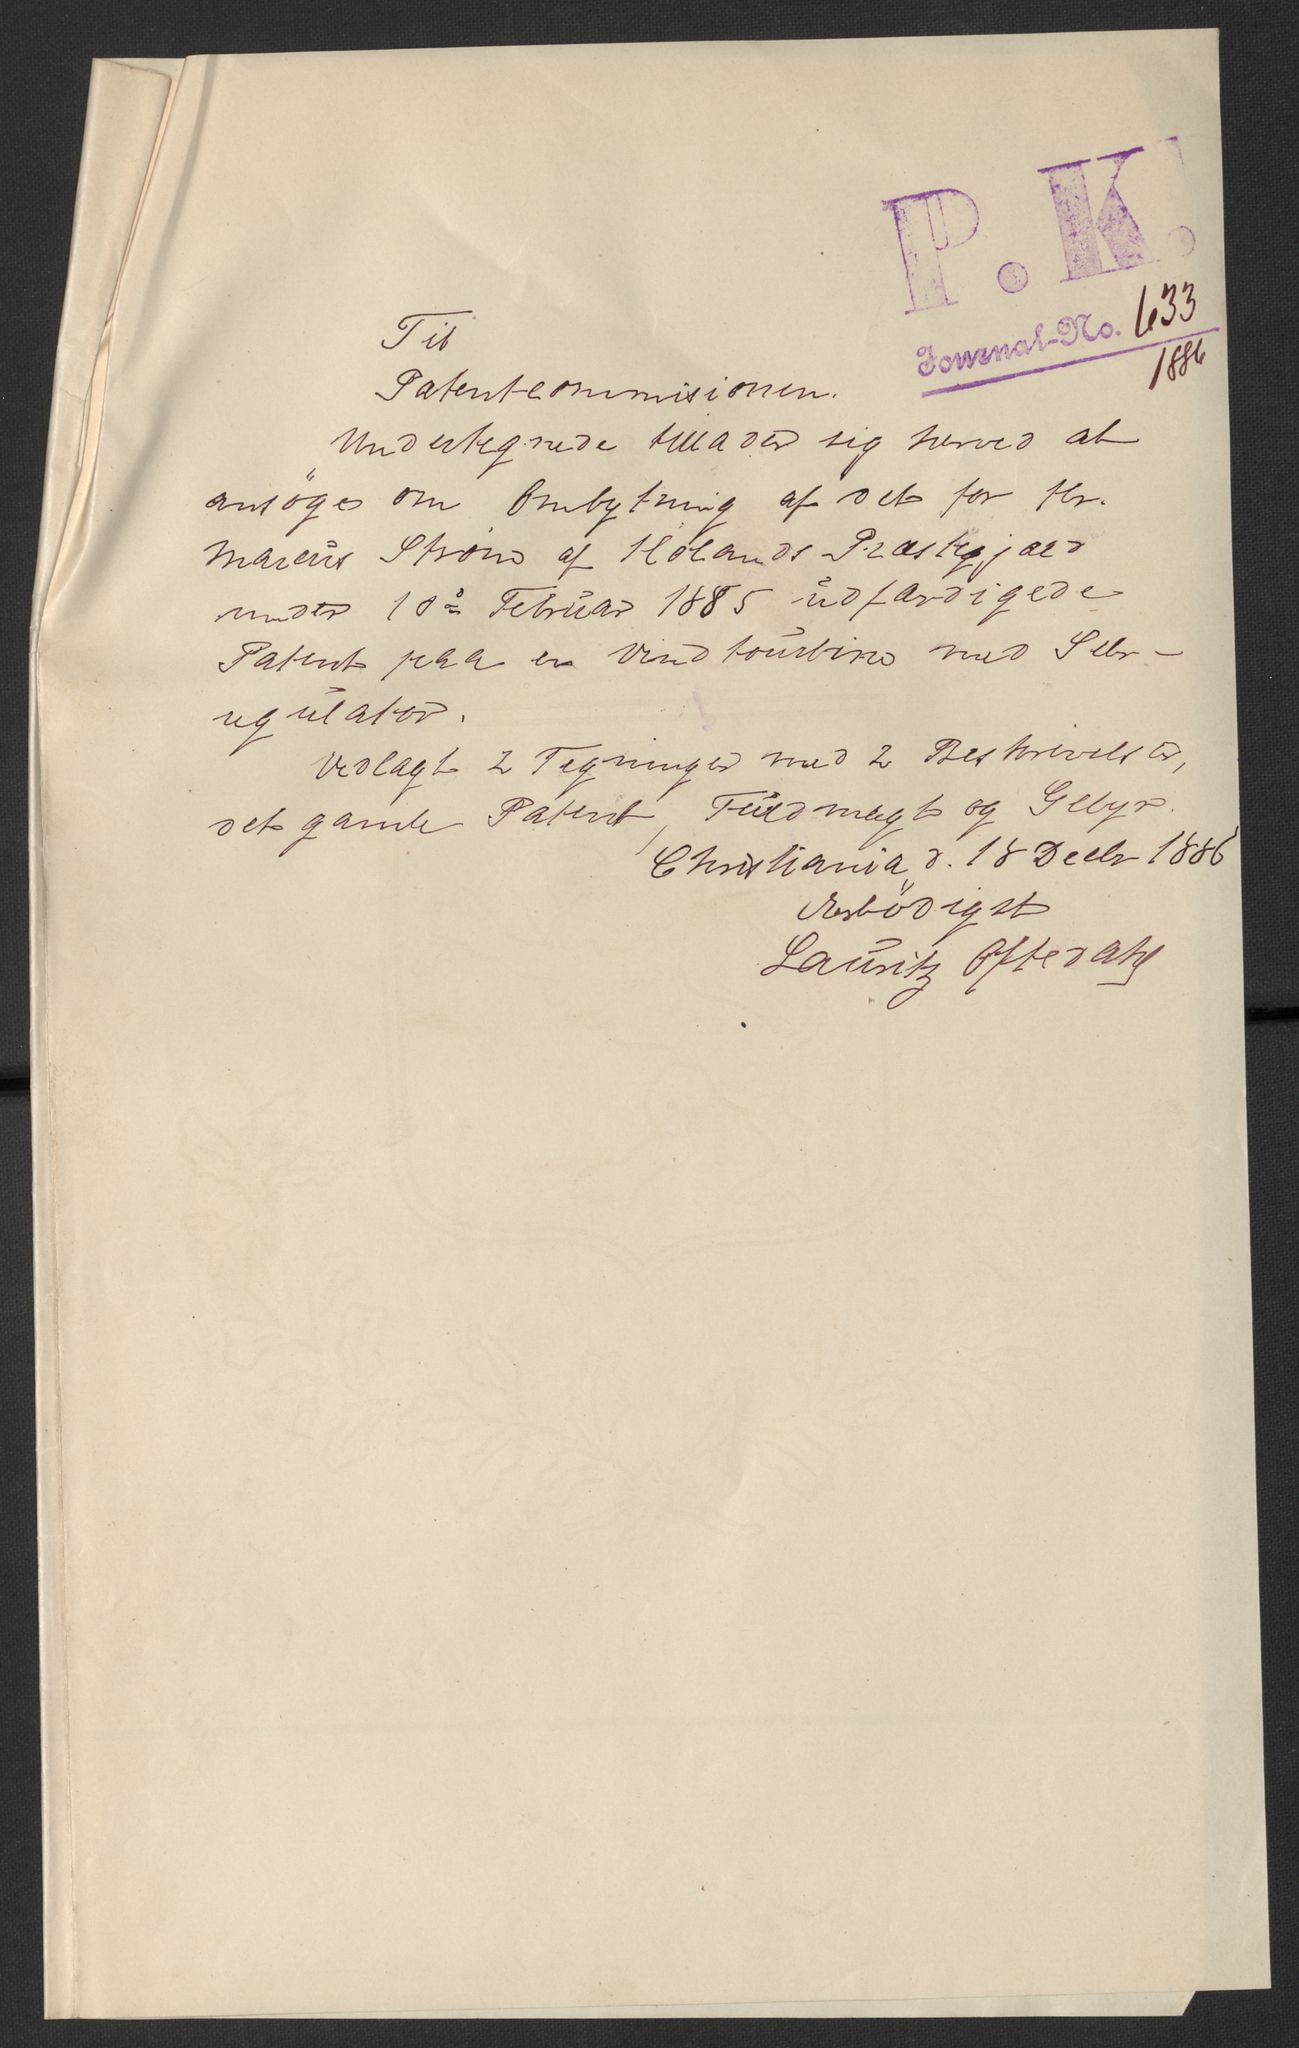 P. K.
Journal-No. 633
1886
Til
Patentcommisionen.
Undertegnede tillader sig herved at
ansöge om Ombytning af det for Hr.
Marcus Strøm af Hölands Præstegjæld
under 10de Februar 1885 udfærdigede
Patent paa en Vindtourbine med Selv-
regulator.
Vedlagt 2 Tegninger med 2 Beskrivelser,
det gamle Patent, Fuldmagt og Gebyr.
Christiania d. 18 Decbr 1886
Ærbödigst
Lauritz Oftedahl